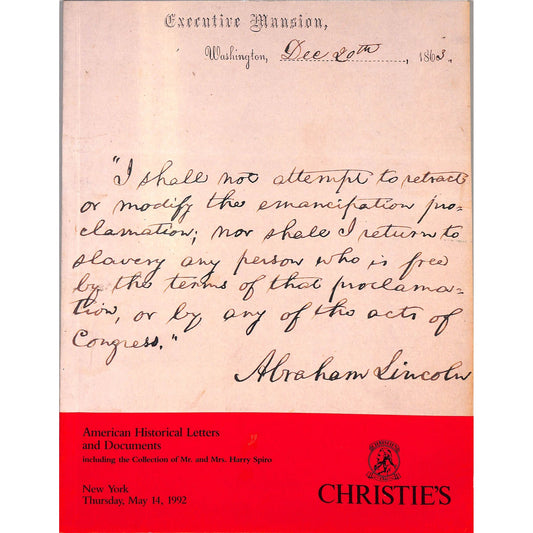 Executive Mansion,
Washington, Dec 20th, 1863.
"I shall not attempt to retract
or modify the emancipation pro-
clamation; nor shall I return to
slavery any person who is free
by the terms of that proclama-
tion, or by any of the acts of
Congress."
Abraham Lincoln
American Historical Letters
and Documents
including the Collection of Mr. and Mrs. Harry Spiro
New York
Thursday, May 14, 1992
CHRISTIE'S